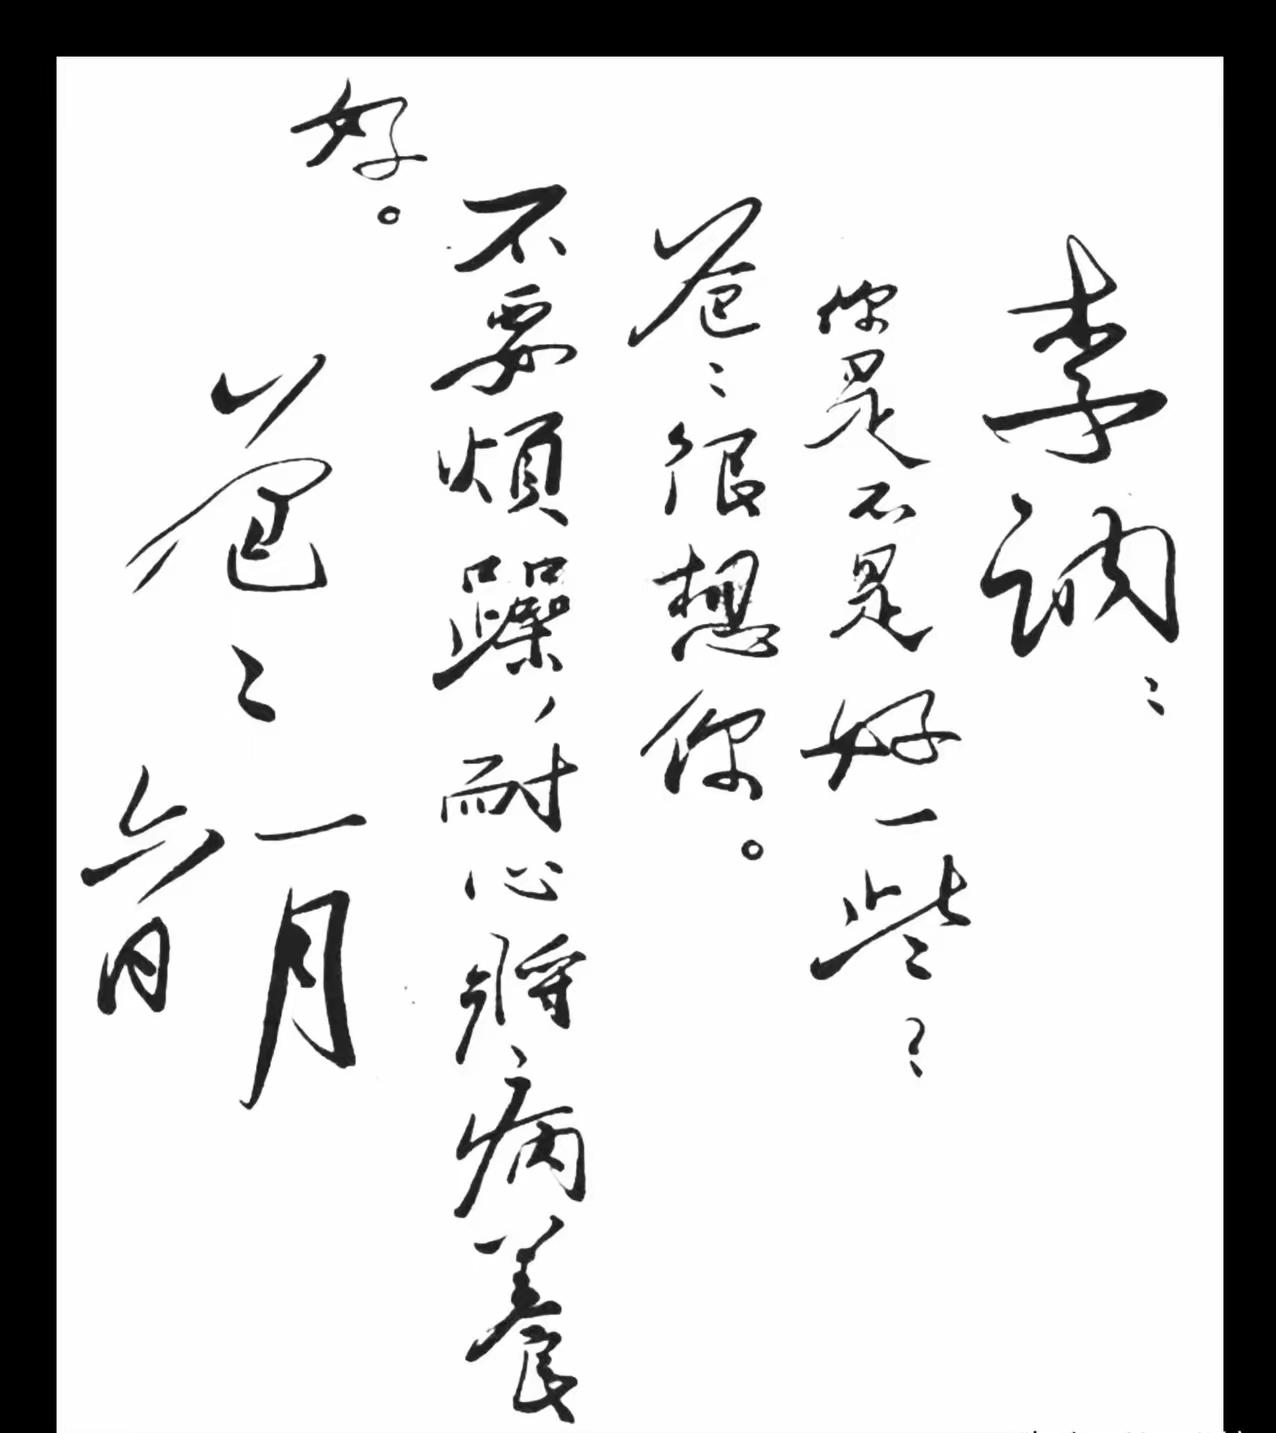 李讷：
你是不是好一些？
爸：很想你。
不要烦躁，耐心将病養
好。
爸：
一月
六日